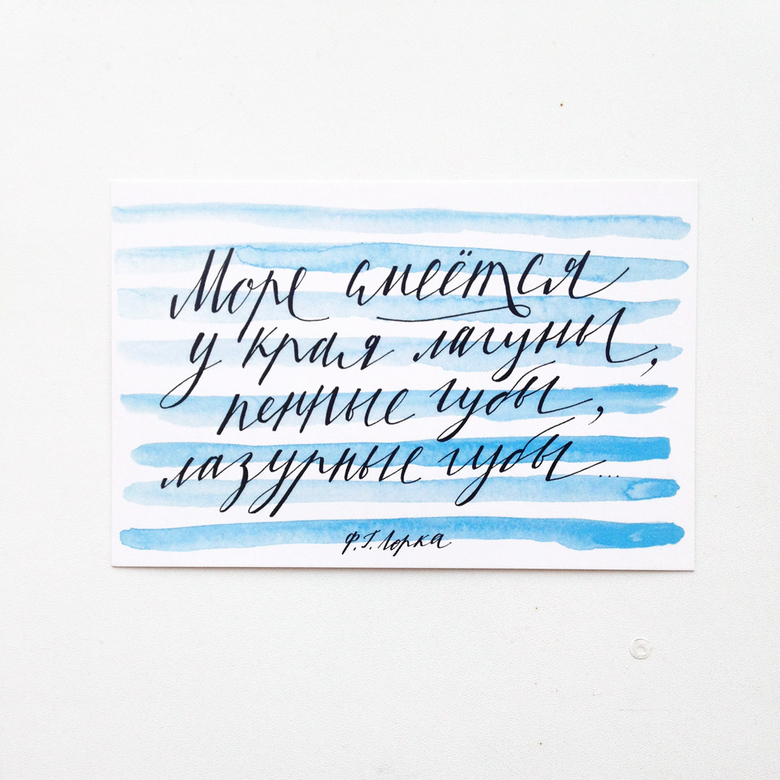 Море смеётся
у края лагуны,
пенные губы,
лазурные губы...
Ф.Г.Лорка